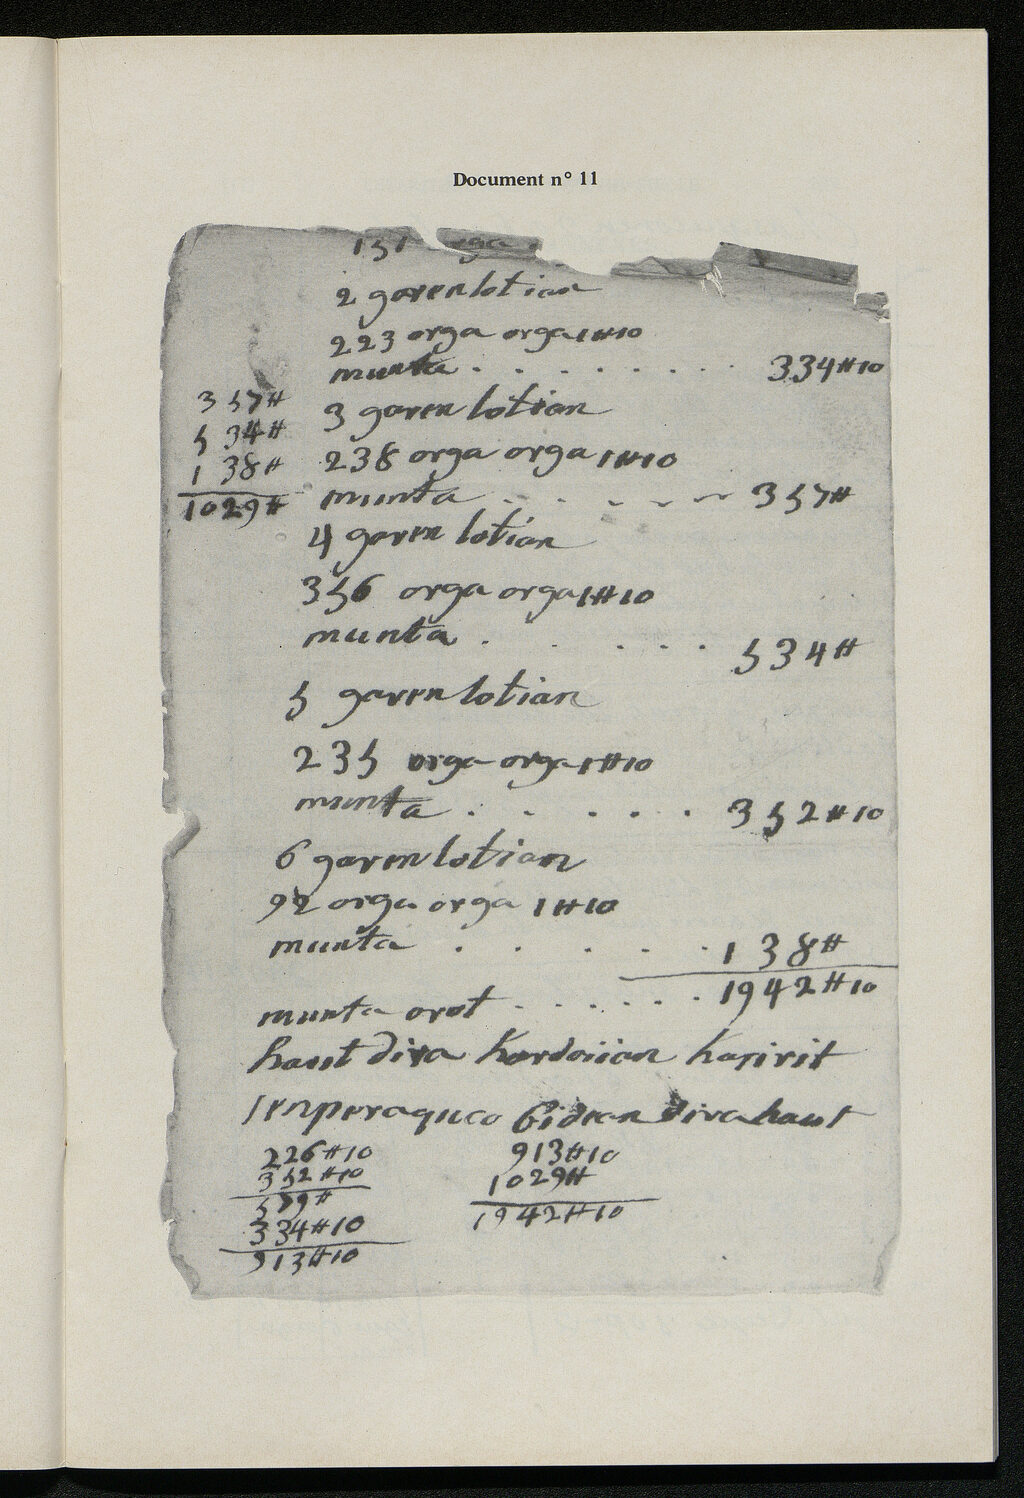 Document n° 11
151 orga
2 garen lotian
223 orga orga 1#10
munta . . . . . . . . . 334#10
357#
534#
138#
1029#
3 garen lotian
238 orga orga 1#10
munta . . . . . . 357#
4 garen lotian
356 orga orga 1#10
munta . . . . . 534#
5 garen lotian
235 orga orga 1#10
munta . . . . . 352#10
6 garen lotian
92 orga orga 1#10
munta . . . . . 138#
munta orot . . . . . . 1942#10
haut dira kordoiian hasirit
bidean dira haut
226#10
352#10
579#
334#10
913#10
913#10
1029#
1942#10